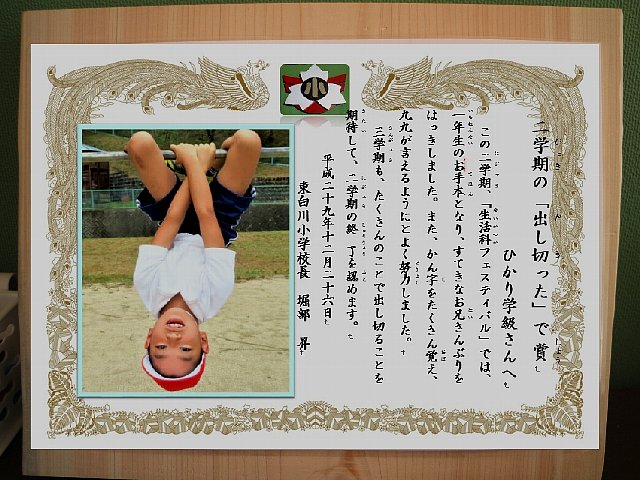 二学期の「出し切った」で賞
ひかり学級さんへ
この二学期、「生活科フェスティバル」では、
一年生のお手本となり、すてきなお兄さんぶりを
はっきしました。また、かん字をたくさん覚え、
九九が言えるようにとよく努力しました。
三学期も、たくさんのことで出し切ることを
期待して、二学期の終了を認めます。
平成二十九年十二月二十六日
東白川小学校長 堀部 昇
小